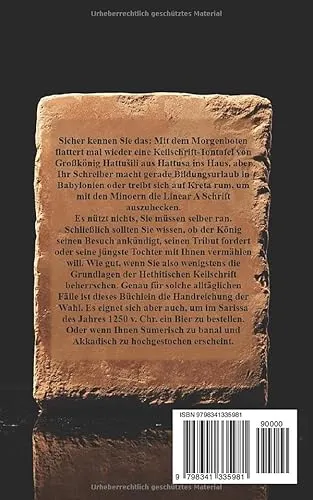 Urheberrechtlich geschütztes Material
Sicher kennen Sie das: Mit dem Morgenboten
flattert mal wieder eine Keilschrift-Tontafel von
Großkönig Hattušili aus Hattusa ins Haus, aber
Ihr Schreiber macht gerade Bildungsurlaub in
Babylonien oder treibt sich auf Kreta rum, um
mit den Minoern die Linear A Schrift
auszuhecken.
Es nützt nichts, Sie müssen selber ran.
Schließlich sollten Sie wissen, ob der König
seinen Besuch ankündigt, seinen Tribut fordert
oder seine jüngste Tochter mit Ihnen vermählen
will. Wie gut, wenn Sie also wenigstens die
Grundlagen der Hethitischen Keilschrift
beherrschen. Genau für solche alltäglichen
Fälle ist dieses Büchlein die Handreichung der
Wahl. Es eignet sich aber auch, um im Sarissa
des Jahres 1250 v. Chr. ein Bier zu bestellen.
Oder wenn Ihnen Sumerisch zu banal und
Akkadisch zu hochgestochen erscheint.
ISBN 9798341335981
90000
9 798341 335981
Urheberrechtlich geschütztes Material